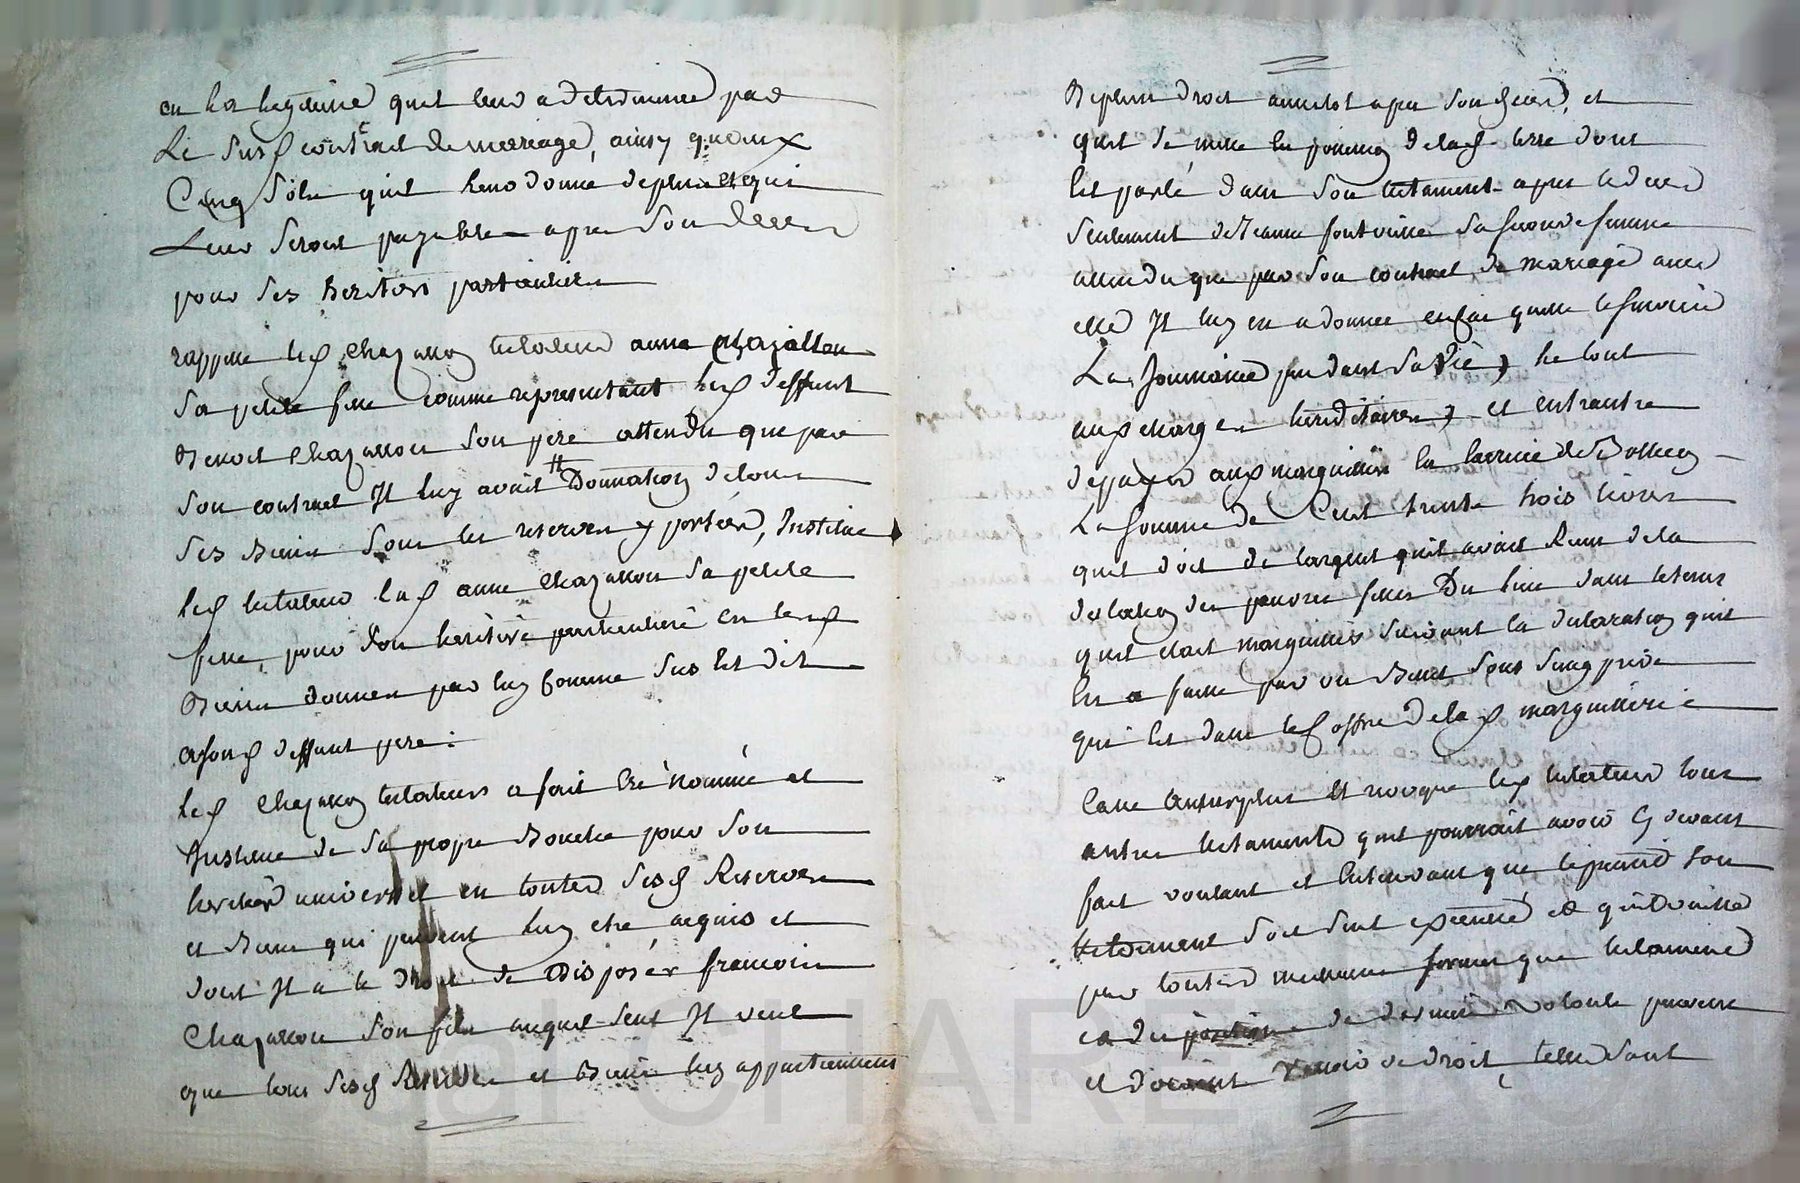 en la legitime quil leur a determinee par
Le susd contract de mariage, ainsy qu'aux
Cinq sols quil leur donne de plus et qui
Leur seront payables apres son deces
pour ses heritiers particuliers
rappelle led Chazallon testateur anne Chazallon
sa petite fille comme representant led deffunt
Benoit Chazallon son pere attendu que par
son contract Il luy avait Donnation de tous
ses biens sous les reserves y portées, Institue
led testateur lad anne Chazallon sa petite
fille, pour son heritière particulière en lesd
Biens donnés par luy comme sus est dit
a sond deffunt pere.
led Chazallon testateur a fait cré nommé et
Institue de sa propre Bouche pour son
heritier universel en toutes sesd Reserves
et Biens qui peuvent luy etre acquis et
dont Il a le droit de Disposer francois
Chazallon son fils auquel seul Il veut
que tous sesd Reserves et Biens luy appartiennent
De plein droit aussitot apres son deces, et
quil se mette en possession de lad terre dont
est parlé dans son testament apres le deces
seulement de Jeanne sa seconde femme
attendu que par son contract de mariage avec
elle Il luy en a donnee
La Jouissance pendant sa vie, le tout
aux charges hereditaires, et entrautre
de payer aux marguilliers la
La somme de Cent trente trois livres
quil doit de largent quil avait Reçu de la
des pauvres filles Du lieu dans le tems
quil etait marguillier suivant la declaration quil
en a faitte par un Billet sous seing privé
qui est dans le Coffre de lad marguillerie
Casse au surplus et revoque led testateur tous
autres testaments quil pourrait avoir Cy devant
fait voulant et entendant que le present son
testament soit seul executé et quil vaille
par toutes meilleures formes que testament
et de derniere volonté peuvent
et doivent valoir de droit, telle sont